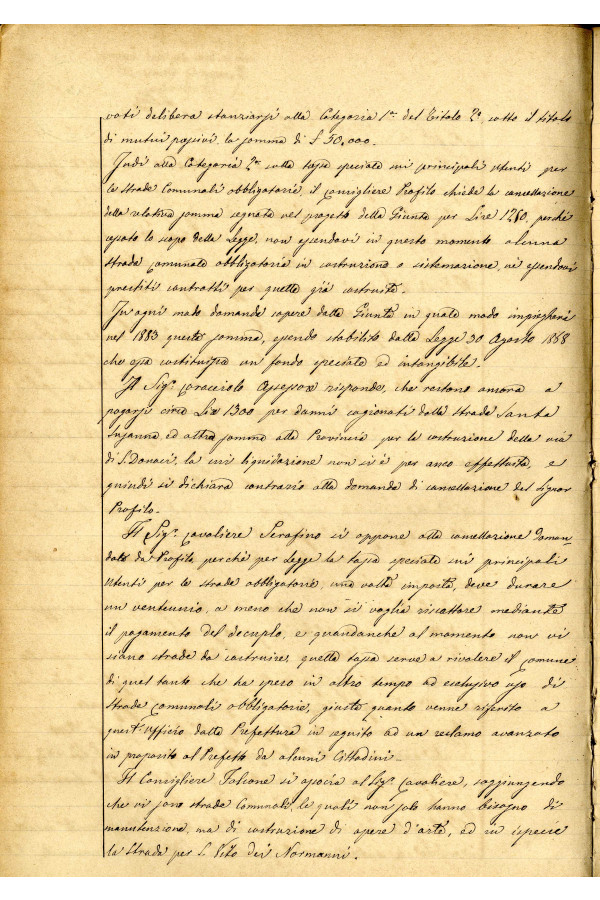 voti delibera stanziarsi alla Categoria 1ª del Titolo 2º sotto il titolo
di mutui passivi la somma di £ 50,000.
Indi alla Categoria 2ª sulla tassa speciale sui principali utenti per
le strade Comunali obbligatorie, il Consigliere Profilo chiede la cancellazione
della relativa somma segnata nel progetto della Giunta per Lire 1280, perchè
cessato lo scopo della Legge, non essendovi in questo momento alcuna
strada Comunale obbligatoria in costruzione o sistemazione, nè essendovi
prestiti contratti per quelle già costruite.
In ogni modo domanda sapere dalla Giunta in quale modo impiegherà
nel 1883 questa somma, essendo stabilito dalla Legge 30 Agosto 1868
che essa costituisca un fondo speciale ed intangibile.
Il Sig. Caracciolo Assessore risponde, che restono ancora a
pagarsi circa Lire 1300 per danni cagionati dalla strada Santa
Susanna ed altra somma alla Provincia per la costruzione della via
di S. Donaci, la cui liquidazione non si è per anco effettuata, e
quindi si dichiara contrario alla domanda di cancellazione del Signor
Profilo.
Il Sig. Cavaliere Serafino si oppone alla cancellazione doman-
data da Profilo, perchè per Legge la tassa speciale sui principali
utenti per le strade obbligatorie, una volta imposta, deve durare
un ventennio, a meno che non si voglia riscattare mediante
il pagamento del decuplo, e quandanche al momento non vi
siano strade da costruire, quella tassa serve a rivalere il Comune
di quel tanto che ha speso in altro tempo ad esclusivo uso di
strade Comunali obbligatorie, giusta quanto venne riferito a
quest'ufficio dalla Prefettura in seguito ad un reclamo avanzato
in proposito al Prefetto da alcuni Cittadini.
Il Consigliere Falcone si associa al Sig. Cavaliere, soggiungendo
che vi sono strade Comunali, le quali non solo hanno bisogno di
manutenzione, ma di costruzione di opere d'arte, ed in ispecie
la strada per S. Vito dei Normanni.